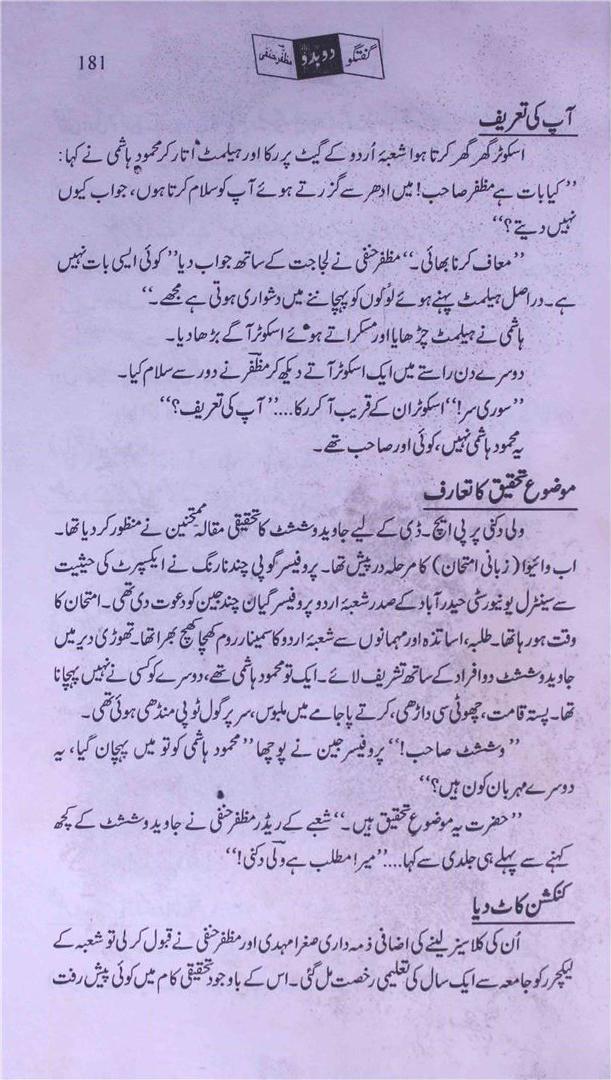 181
گفتگو دوبدو مظفر حنفی
آپ کی تعریف
اسکوٹر گھر گھر کرتا ہوا شعبۂ اُردو کے گیٹ پر رکا اور ہیلمٹ اتار کر محمود ہاشمی نے کہا:
’’کیا بات ہے مظفر صاحب! میں ادھر سے گزرتے ہوئے آپ کو سلام کرتا ہوں، جواب کیوں
نہیں دیتے؟‘‘
’’معاف کرنا بھائی۔‘‘ مظفر حنفی نے لجاجت کے ساتھ جواب دیا ’’کوئی ایسی بات نہیں
ہے۔ دراصل ہیلمٹ پہنے ہوئے لوگوں کو پہچاننے میں دشواری ہوتی ہے مجھے۔‘‘
ہاشمی نے ہیلمٹ چڑھایا اور مسکراتے ہوئے اسکوٹر آگے بڑھا دیا۔
دوسرے دن راستے میں ایک اسکوٹر آتے دیکھ کر مظفر نے دور سے سلام کیا۔
’’سوری سر!‘‘ اسکوٹر ان کے قریب آ کر رکا....’’آپ کی تعریف؟‘‘
یہ محمود ہاشمی نہیں، کوئی اور صاحب تھے۔
موضوع تحقیق کا تعارف
ولی دکنی پر پی ایچ۔ ڈی کے لیے جاوید وششٹ کا تحقیقی مقالہ ممتحنین نے منظور کر دیا تھا۔
اب وائیوا (زبانی امتحان) کا مرحلہ درپیش تھا۔ پروفیسر گوپی چند نارنگ نے ایکسپرٹ کی حیثیت
سے سینٹرل یونیورسٹی حیدرآباد کے صدر شعبۂ اردو پروفیسر گیان چند جین کو دعوت دی تھی۔ امتحان کا
وقت ہو رہا تھا۔ طلبہ، اساتذہ اور مہمانوں سے شعبۂ اردو کا سمینار روم کھچا کھچ بھرا تھا۔ تھوڑی دیر میں
جاوید وششٹ دو افراد کے ساتھ تشریف لائے۔ ایک تو محمود ہاشمی تھے، دوسرے کو کسی نے نہیں پہچانا
تھا۔ پستہ قامت، چھوٹی سی داڑھی، کرتے پاجامے میں ملبوس، سر پر گول ٹوپی منڈھی ہوئی تھی۔
’’وششٹ صاحب!‘‘ پروفیسر جین نے پوچھا ’’محمود ہاشمی کو تو میں پہچان گیا، یہ
دوسرے مہربان کون ہیں؟‘‘
’’حضرت یہ موضوع تحقیق ہیں۔‘‘ شعبے کے ریڈر مظفر حنفی نے جاوید وششٹ کے کچھ
کہنے سے پہلے ہی جلدی سے کہا....’’میرا مطلب ہے ولی دکنی!‘‘
کنکشن کاٹ دیا
اُن کی کلاسیز لینے کی اضافی ذمہ داری صغرا مہدی اور مظفر حنفی نے قبول کر لی تو شعبہ کے
لیکچرر کو جامعہ سے ایک سال کی تعلیمی رخصت مل گئی۔ اس کے باوجود تحقیقی کام میں کوئی پیش رفت